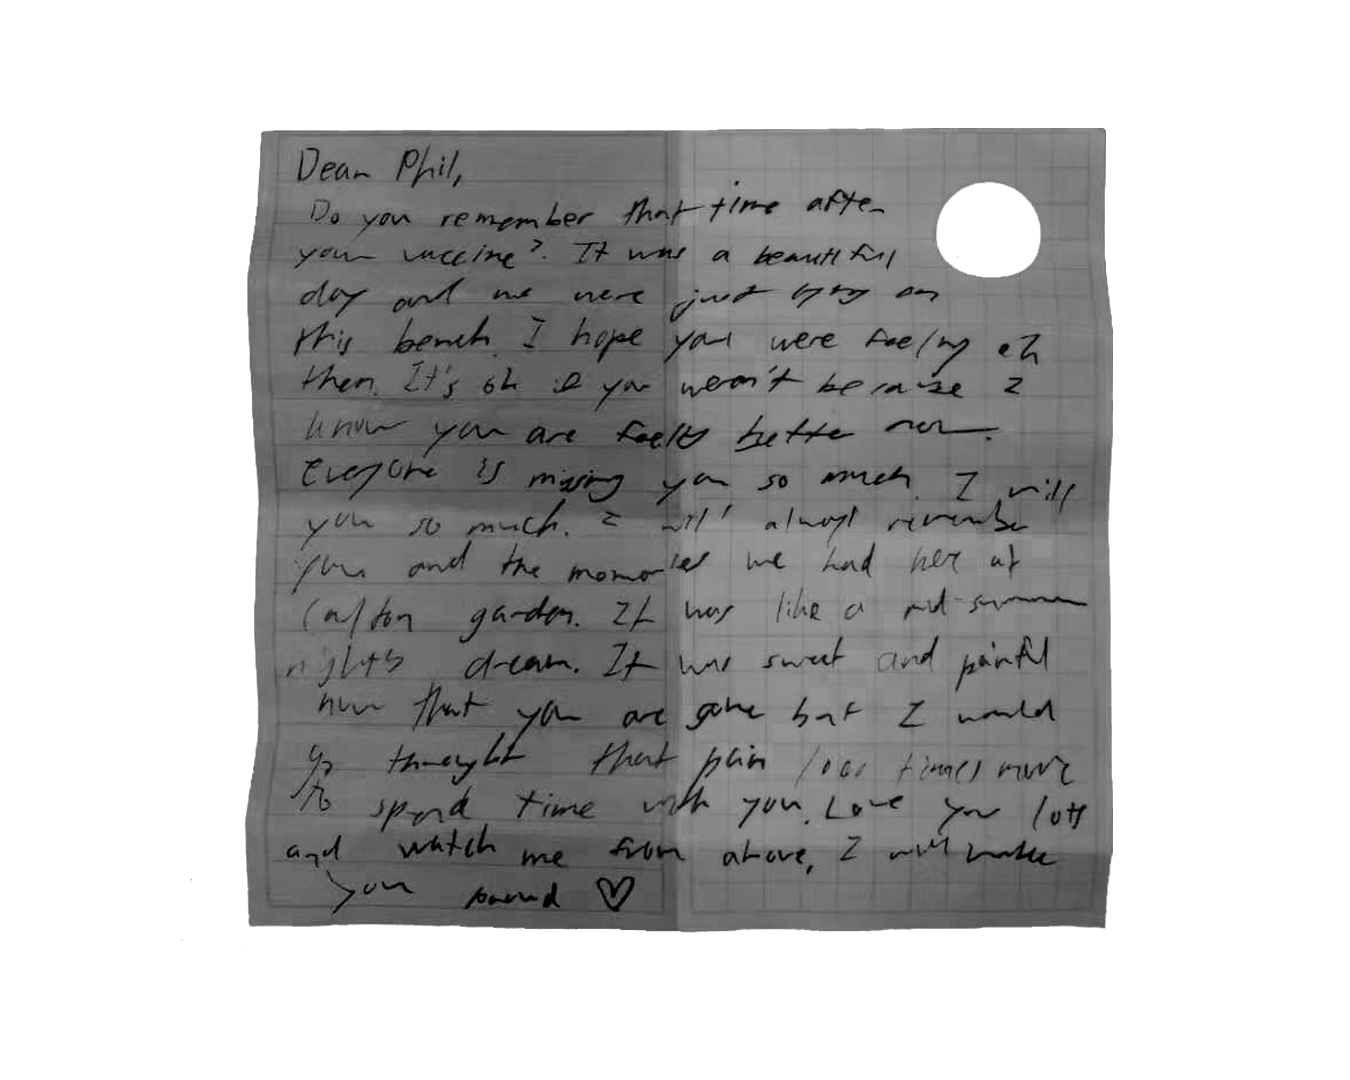 Dear Phil,
Do you remember that time after
your vaccine? It was a beautiful
day and we were just lying on
this bench. I hope you were feeling ok
then. It's ok if you weren't because I
know you are feeling better now.
Everyone is missing you so much. I will
you so much. I will always remember
you and the memories we had her at
Calton garden. It was like a mid-summer
nights dream. It was sweet and painful
now that you are gone but I would
go throught that pain 1000 times more
to spend time with you. Love you lots
and watch me from above, I will make
you pround ♡